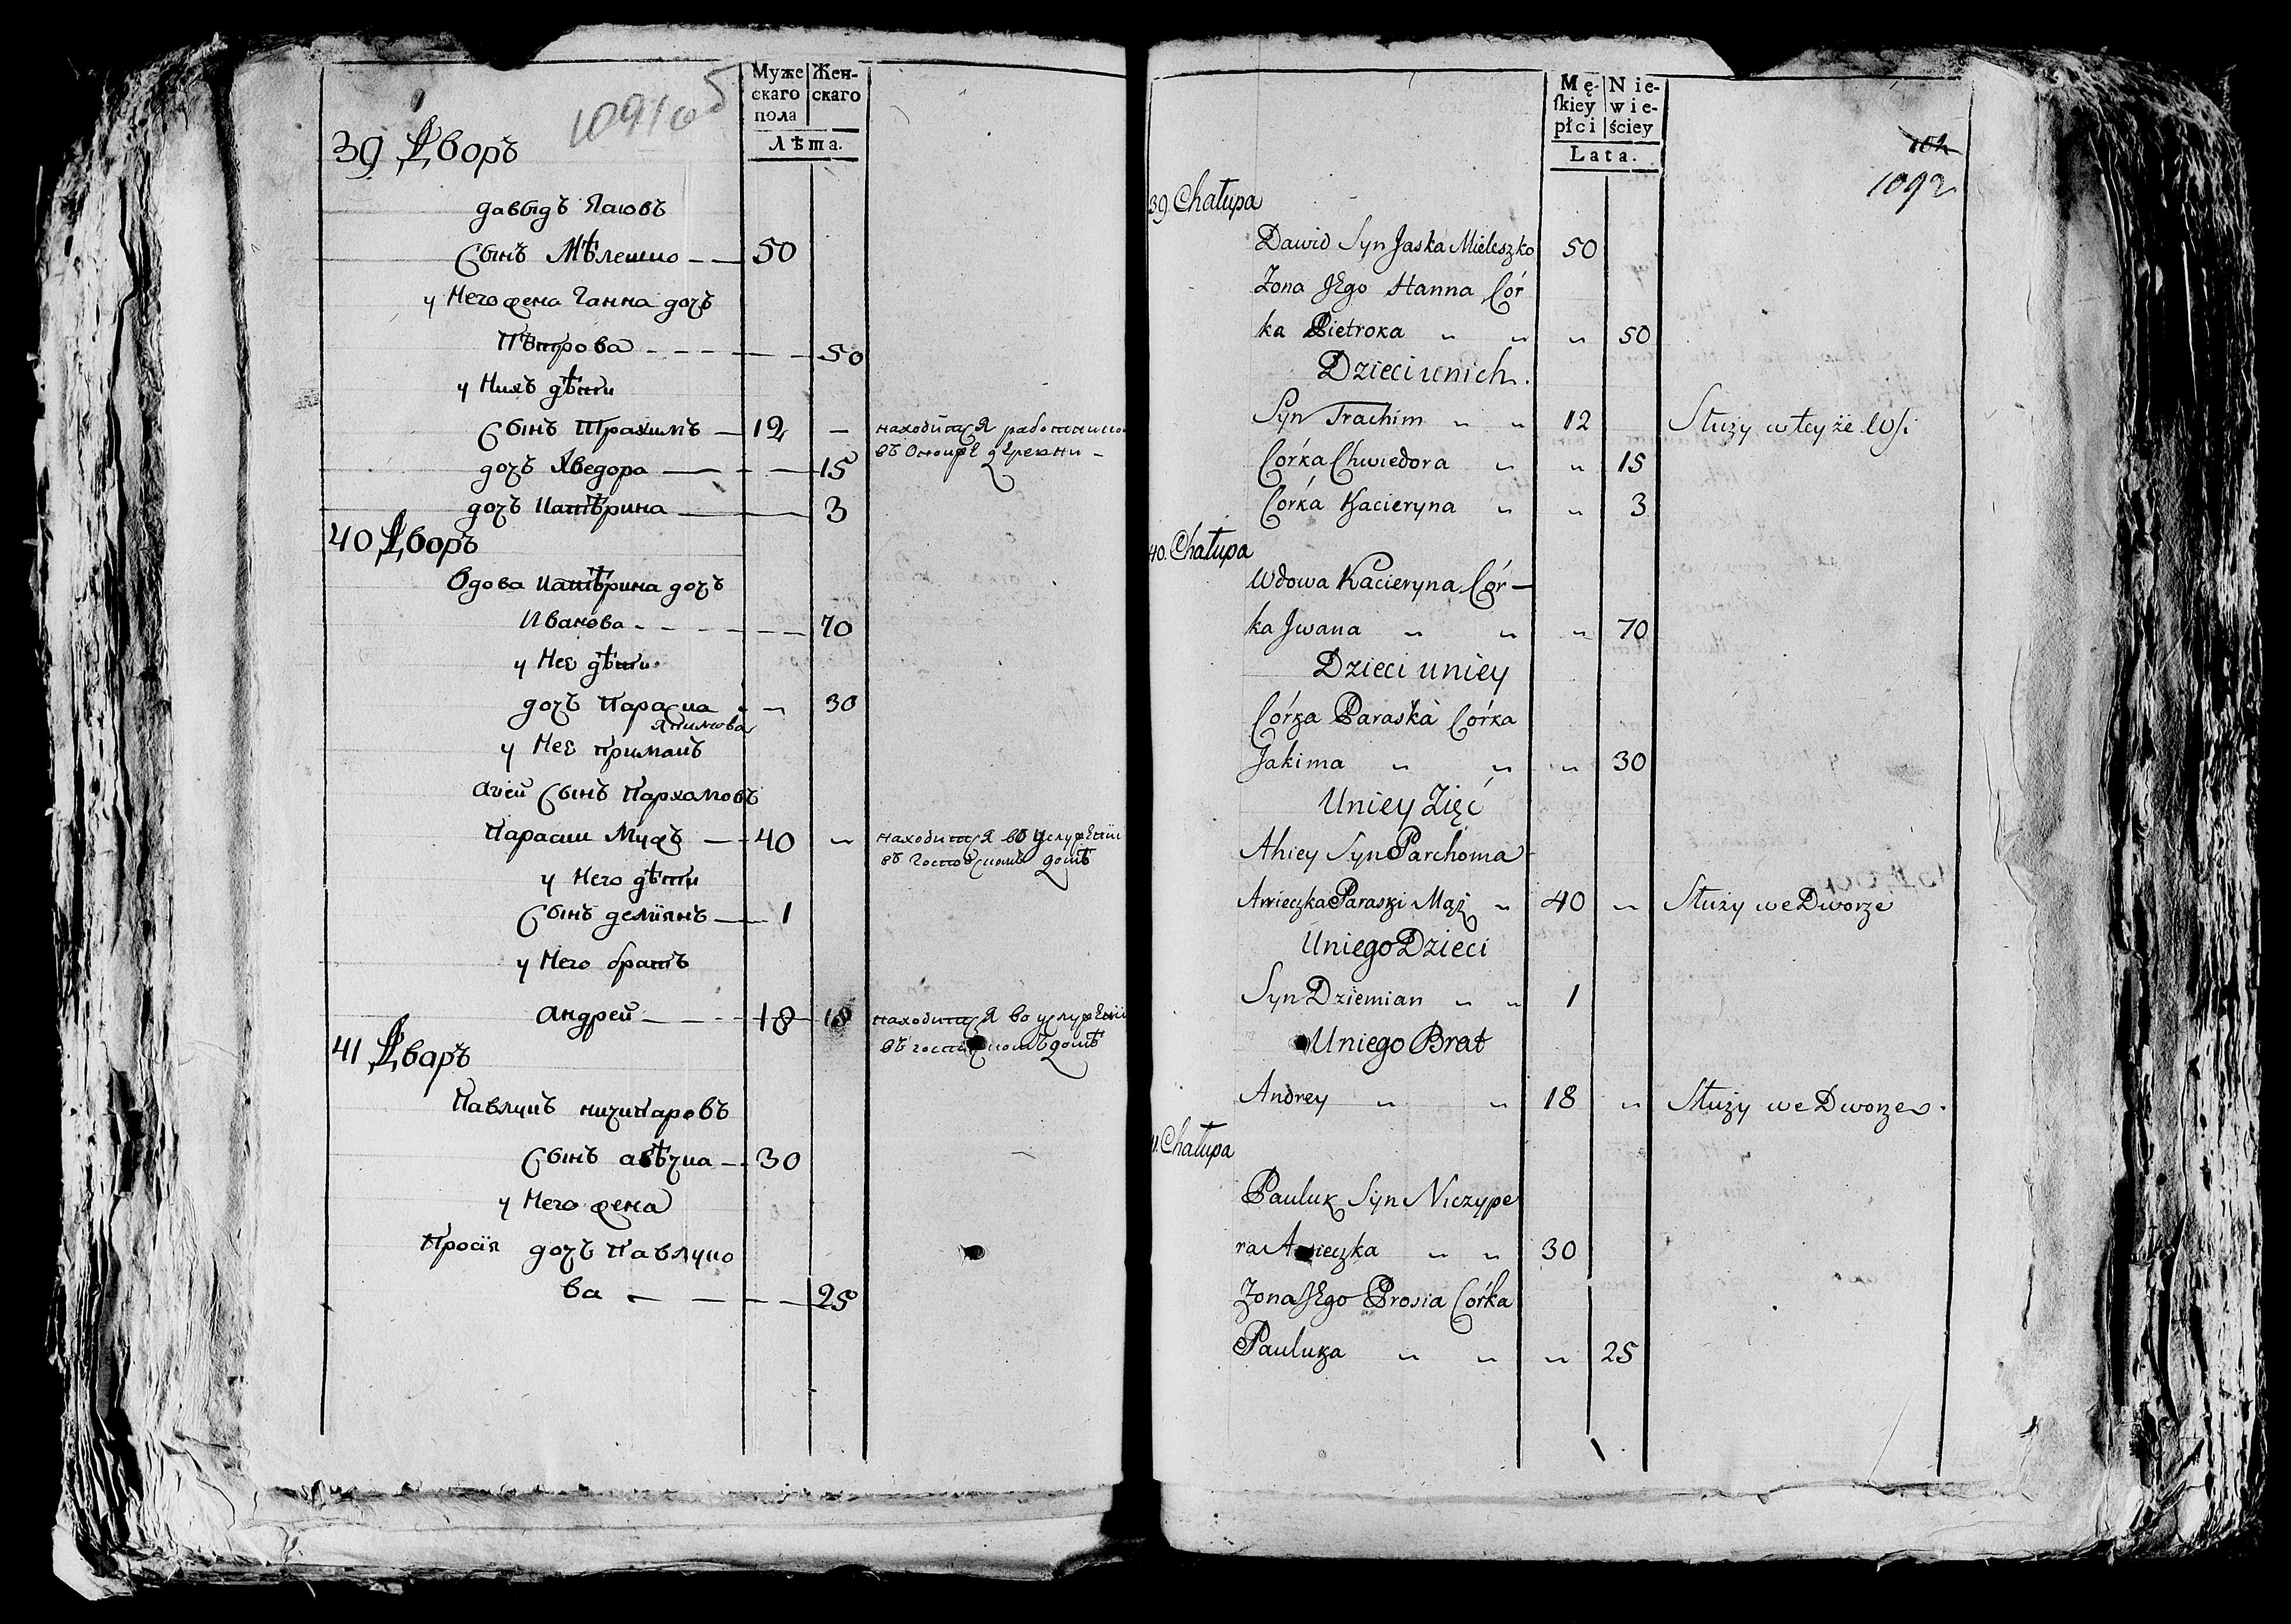 1091 об
Муже
скаго
пола
Жен-
скаго
Лѣта.
39 Дворъ
давыдъ Яковъ
Сынъ Мѣлешко — — 50
у Него жена Ганна дочь
Пѣтрова - - - — — 50
у Нихъ дѣти
Сынъ Трахимъ — 12 — находится работникомъ
въ Оной же деревни —
дочь Хведора — — — 15
дочь Катѣрина — — 3
40 Дворъ
Вдова Катѣрина дочь
Иванова - - - — — 70
у Неѣ дѣти
дочь Параска - — 30
Якимова
у Неѣ Примакъ
Агей Сынъ Пархомовъ
Параски Мужъ — 40 — находится во услужѣнїи
въ Господскомъ домѣ
у Него дѣти
Сынъ демїянъ — 1
у Него братъ
андрей — - - 18 18 находится во услужѣнїи
въ господскомъ домѣ
41 Дваръ
Павлукъ ничипаровъ
Сынъ авѣчка — 30
у Него жена
Просїя дочь Павлуко
ва — — — — 25
Mę-
skiey
płci
Nie-
wie-
ściey
Lata.
102
1092
39. Chałupa
Dawid Syn Jaska Mieleszko 50
Zona JEgo Hanna Cór
ka Pietroka „ „ „ 50
Dzieci unich.
Syn Trachim „ „ 12 Służy w tey że Wsi
Córka Chwiedora „ „ 15
Corka Kacieryna „ „ 3
40. Chałupa
Wdowa Kacieryna Cór —
ka Jwana „ „ „ 70
Dzieci uniey
Córka Paraska Córka
Jakima „ „ „ 30
Uniey Zięć
Ahiey Syn Parchoma
Awieczka Paraski Mąż „ 40 „ Służy we Dworze
Uniego Dzieci
Syn Dziemian „ „ 1
Uniego Brat
Andrey „ „ 18 „ Służy we Dworze.
1. Chałupa
Pauluk Syn Niczype
ra Awieczka „ „ 30
Zona JEgo Prosia Córka
Pauluka „ „ „ 25